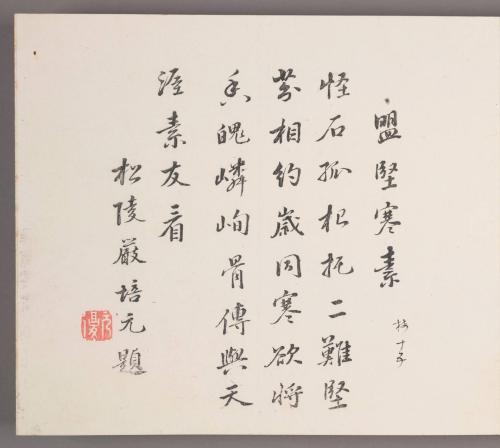 盟堅寒素
怪石孤根托二難堅
芬相約歲同寒欲將
香魄嶙峋骨傳與天
涯素友看
松陵嚴培元題